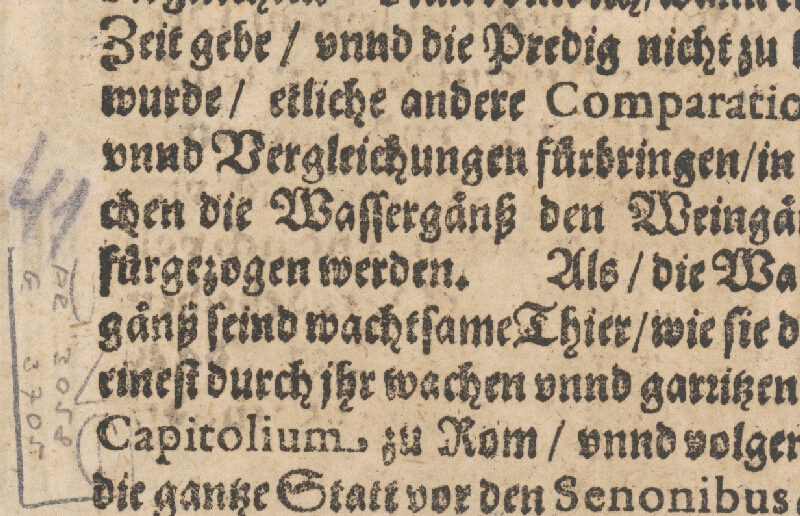 Zeit gebe / vnnd die Predig nicht zu
wurde / etliche andere Comparatio
vnnd Vergleichungen fürbringen/in
chen die Wassergänß den Weingä
fürgezogen werden. Als / die Wa
gänß seind wachtsame Thier/wie sie d
einest durch jhr wachen vnnd garritzen
Capitolium zu Rom / vnnd volgen
die gantze Statt vor den Senonibus
41